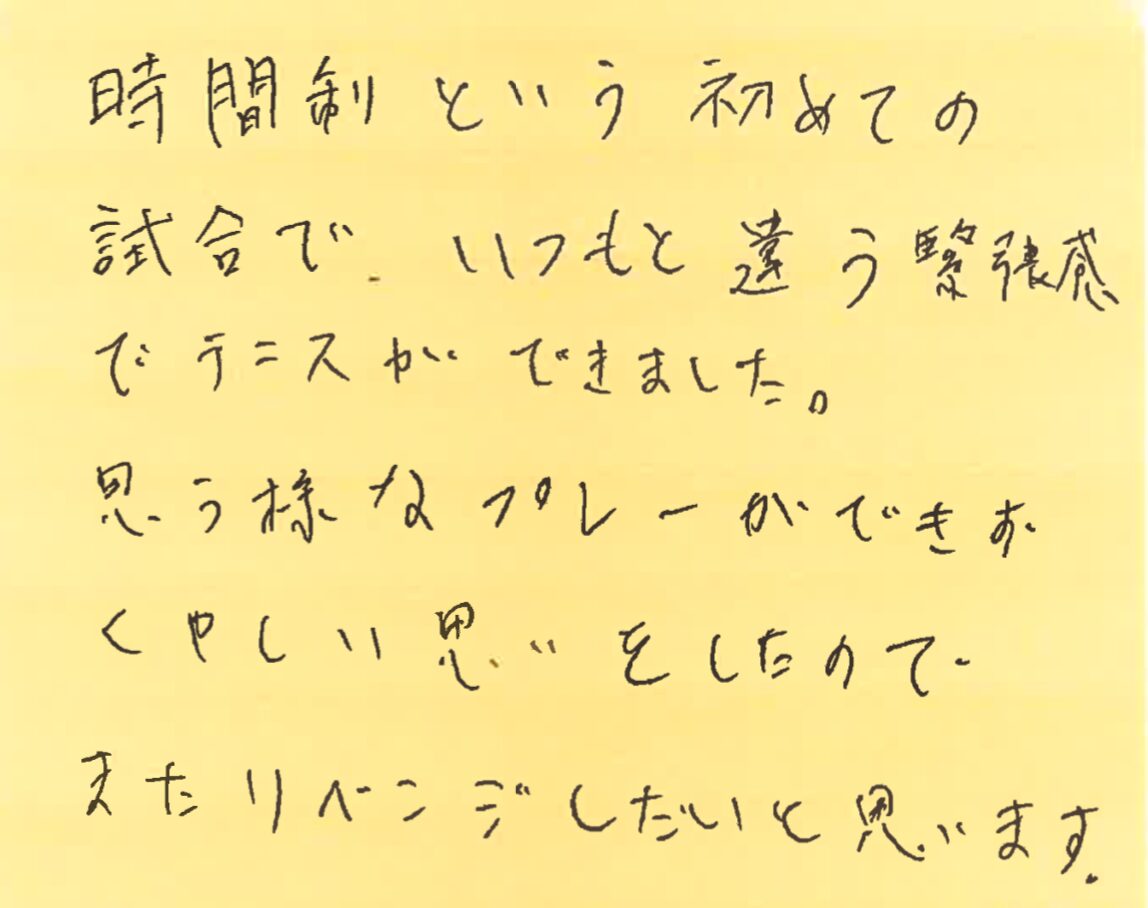 時間制という初めての
試合で、いつもと違う緊張感
でテニスができました。
思う様なプレーができず
くやしい思いをしたので
またリベンジしたいと思います.